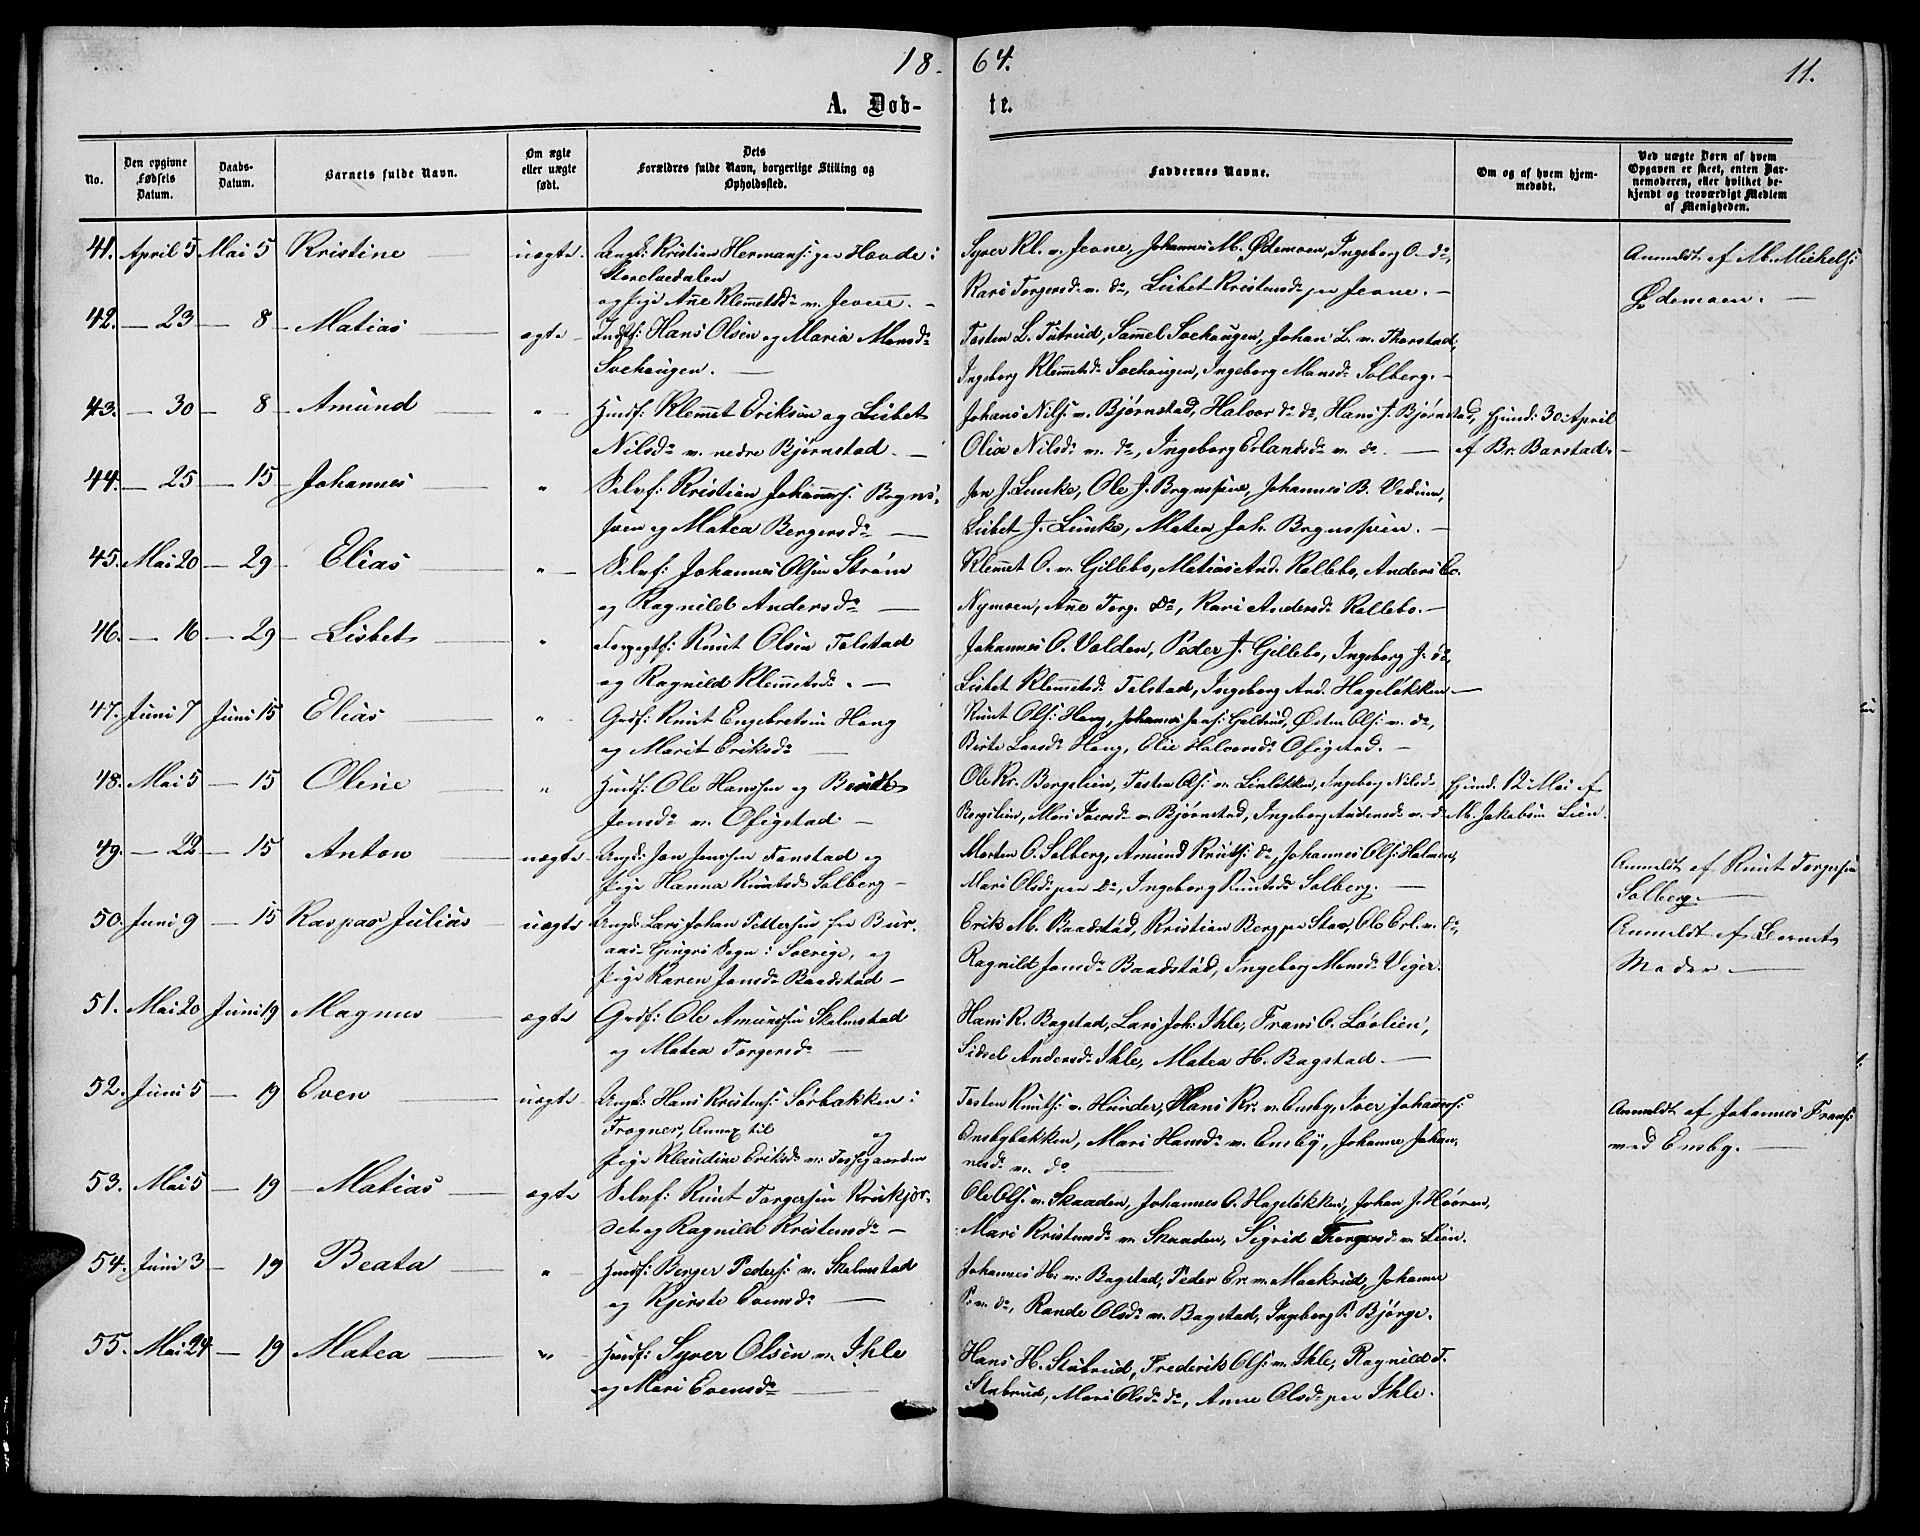 18
64.
11.
A. Døb-
te.
No.
Den opgivne Fødsels Datum.
Daabs-Datum.
Barnets fulde Navn.
Om ægte eller uægte født.
Dets Forældres fulde Navn, borgerlige Stilling og Opholdssted.
Faddernes Navne.
Om og af hvem hjemmedøbt.
Ved uægte Børn af hvem Opgaven er skeet, enten Barnemoderen, eller hvilket bekjendt og troværdigt Medlem af Menigheden.
41. April 5 Mai 5 Kristine — uægte Ungk: Kristian Hermans: paa Hovde i
Storelvedalen
og pige Ane Klemetsdr v. Jevne. —
Syver Kl. v. Jevne, Johannes M. Ødemoen, Ingeborg O. do,
Kari Torgersdr v. do, Lisbet Kristensdr paa Jevne. —
Anmeldt af M. Mickels:
Ødemoen. —
42. — 23 — 8 — Matias — ægte — Indst: Hans Olsen og Maria Monsdr
Svehaugen. —
Tosten L. Tutrud, Samel Svehaugen, Johan L. v. Thorstad,
Ingeborg Klemetsdr Svehaugen, Ingeborg Monsdr Solberg. —
43. — 30 — 8 Amund — " — Husf: Klemet Eriksen og Lisbet
Nilsdr v. nedre Bjørnstad. —
Johans Nils: v. Bjørnstad, Halvor do do, Hans J. Bjørnstad,
Olia Nilsdr v. do, Ingeborg Erlandsdr v. do. —
Hjemd: 30. April
af Br. Barstad. —
44. — 25 — 15 Johannes — " Selvf: Kristian Johannes: Bryns-
sven og Matea Bergersdr —
Jon J. Lunke, Ole J. Brynssven, Johannes B. Vedum,
Lisbet J. Lunke, Matea Joh. Brynssven. —
45. Mai 20 — 29 — Elias — " — Selvf: Johannes Olsen Strøm
og Ragnild Andersdr —
Klemet O. v. Gillebo, Matias And. Kollebo, Anders Ec.
Nymoen, Ane Torg. do, Kari Andersdr Kollebo. —
46. — 16 — 29 — Lisbet — " Forpagtf: Knut Olsen Tolstad
og Ragnild Klemetsdr. —
Johannes O. Volden, Peder J. Gillebo, Ingeborg J. do,
Lisbet Klemetsdr Tolstad, Ingeborg And. Hageløkken —
47. Juni 7 Juni 15 Elias — " Grdf: Knut Engebretsen Haug
og Marit Eriksdr —
Knut Ols: Haug, Johannes Jens: Goltrud, Østen Ols: v. do,
Birte Larsdr Haug, Elie Halvorsdr Ofigstad. —
48. Mai 5 — 15 Oline — " Husf: Ole Hanssen og Berte
Jonsdr v. Ofigstad. —
Ole Kr. Borgelien, Tosten Ols: v. Linløkken, Ingeborg Nilsdr
Borgelien, Mari Iversdr v. Bjørnstad, Ingeborg Andersdr v. do
Hjemd: 12 Mai af
M. Jakobsen Lien.
49. — 22 — 15 Anton — uægte Ungk: Jon Jonssen Fonstad og
Pige Hanna Knutsdr Solberg —
Morten O. Solberg, Amund Knuts: do, Johannes Ols: Holmen,
Mari Olsdr paa do, Ingeborg Knutsdr Solberg. —
Anmeldt af Knut Torgersen
Solberg. —
50. Juni 9 — 15 Kaspar Julius — uægte Ungk: Lars Johan Pettersen fra Bur-
aas Gingri Sogn i Sverige, og
Pige Karen Jonsdr Baadstad —
Erik M. Baadstad, Kristian Berg paa Stav, Ole Erl. v. do,
Ragnild Jonsdr Baadstad, Ingeborg Monsdr Viger.
Anmeldt af Barnets
Moder —
51. Mai 20 Juni 19 Magnus — ægte Grdf: Ole Amundsen Skalmstad
og Matea Torgersdr —
Hans R. Bagstad, Lars Joh: Ihle, Frans O. Loolien,
Sidsel Andersdr Ihle, Matea H. Bagstad. —
52. Juni 5 — 19 Even — uægte Ungk: Hans Kristens: Sørbakken i
Trogner, Annex til og
Pige Klaudine Eriksdr v: Tofsegaarden
Tosten Knuts: v. Hunder, Hans Kr. v. Ensby, Iver Johannes:
Onsbybakken, Mari Hansdr v. Ensby, Johanne Johan-
nesdr v. do —
Anmeldt af Johannes Frans:
med Ensby. —
53. Mai 5 — 19 — Matias — ægte Selvf: Knut Torgersen Krukjor-
det og Ragnild Kristensdr —
Ole Ols: v. Skaaden, Johannes O. Hageløkken, Johan J. Høøren,
Mari Kristensdr v. Skaaden, Sigrid Torgersdr v. Lien.
54. Juni 3 — 19 Beata — " Husf: Berger Peders: v. Skalmstad
og Kjerste Evensdr —
Johannes H. v: Bagstad, Peder Er. v. Maakrud, Johanne
P. v. do, Rande Olsdr v. Bagstad, Ingeborg P. Bjørge.
55. Mai 24 — 19 Matea — " — Husf: Syver Olsen v. Ihle
og Mari Evensdr —
Hans H. Stubrud, Frederik Ols: v. Ihle, Ragnild T.
Stubrud, Mari Olsdr do, Anne Olsdr paa Ihle.